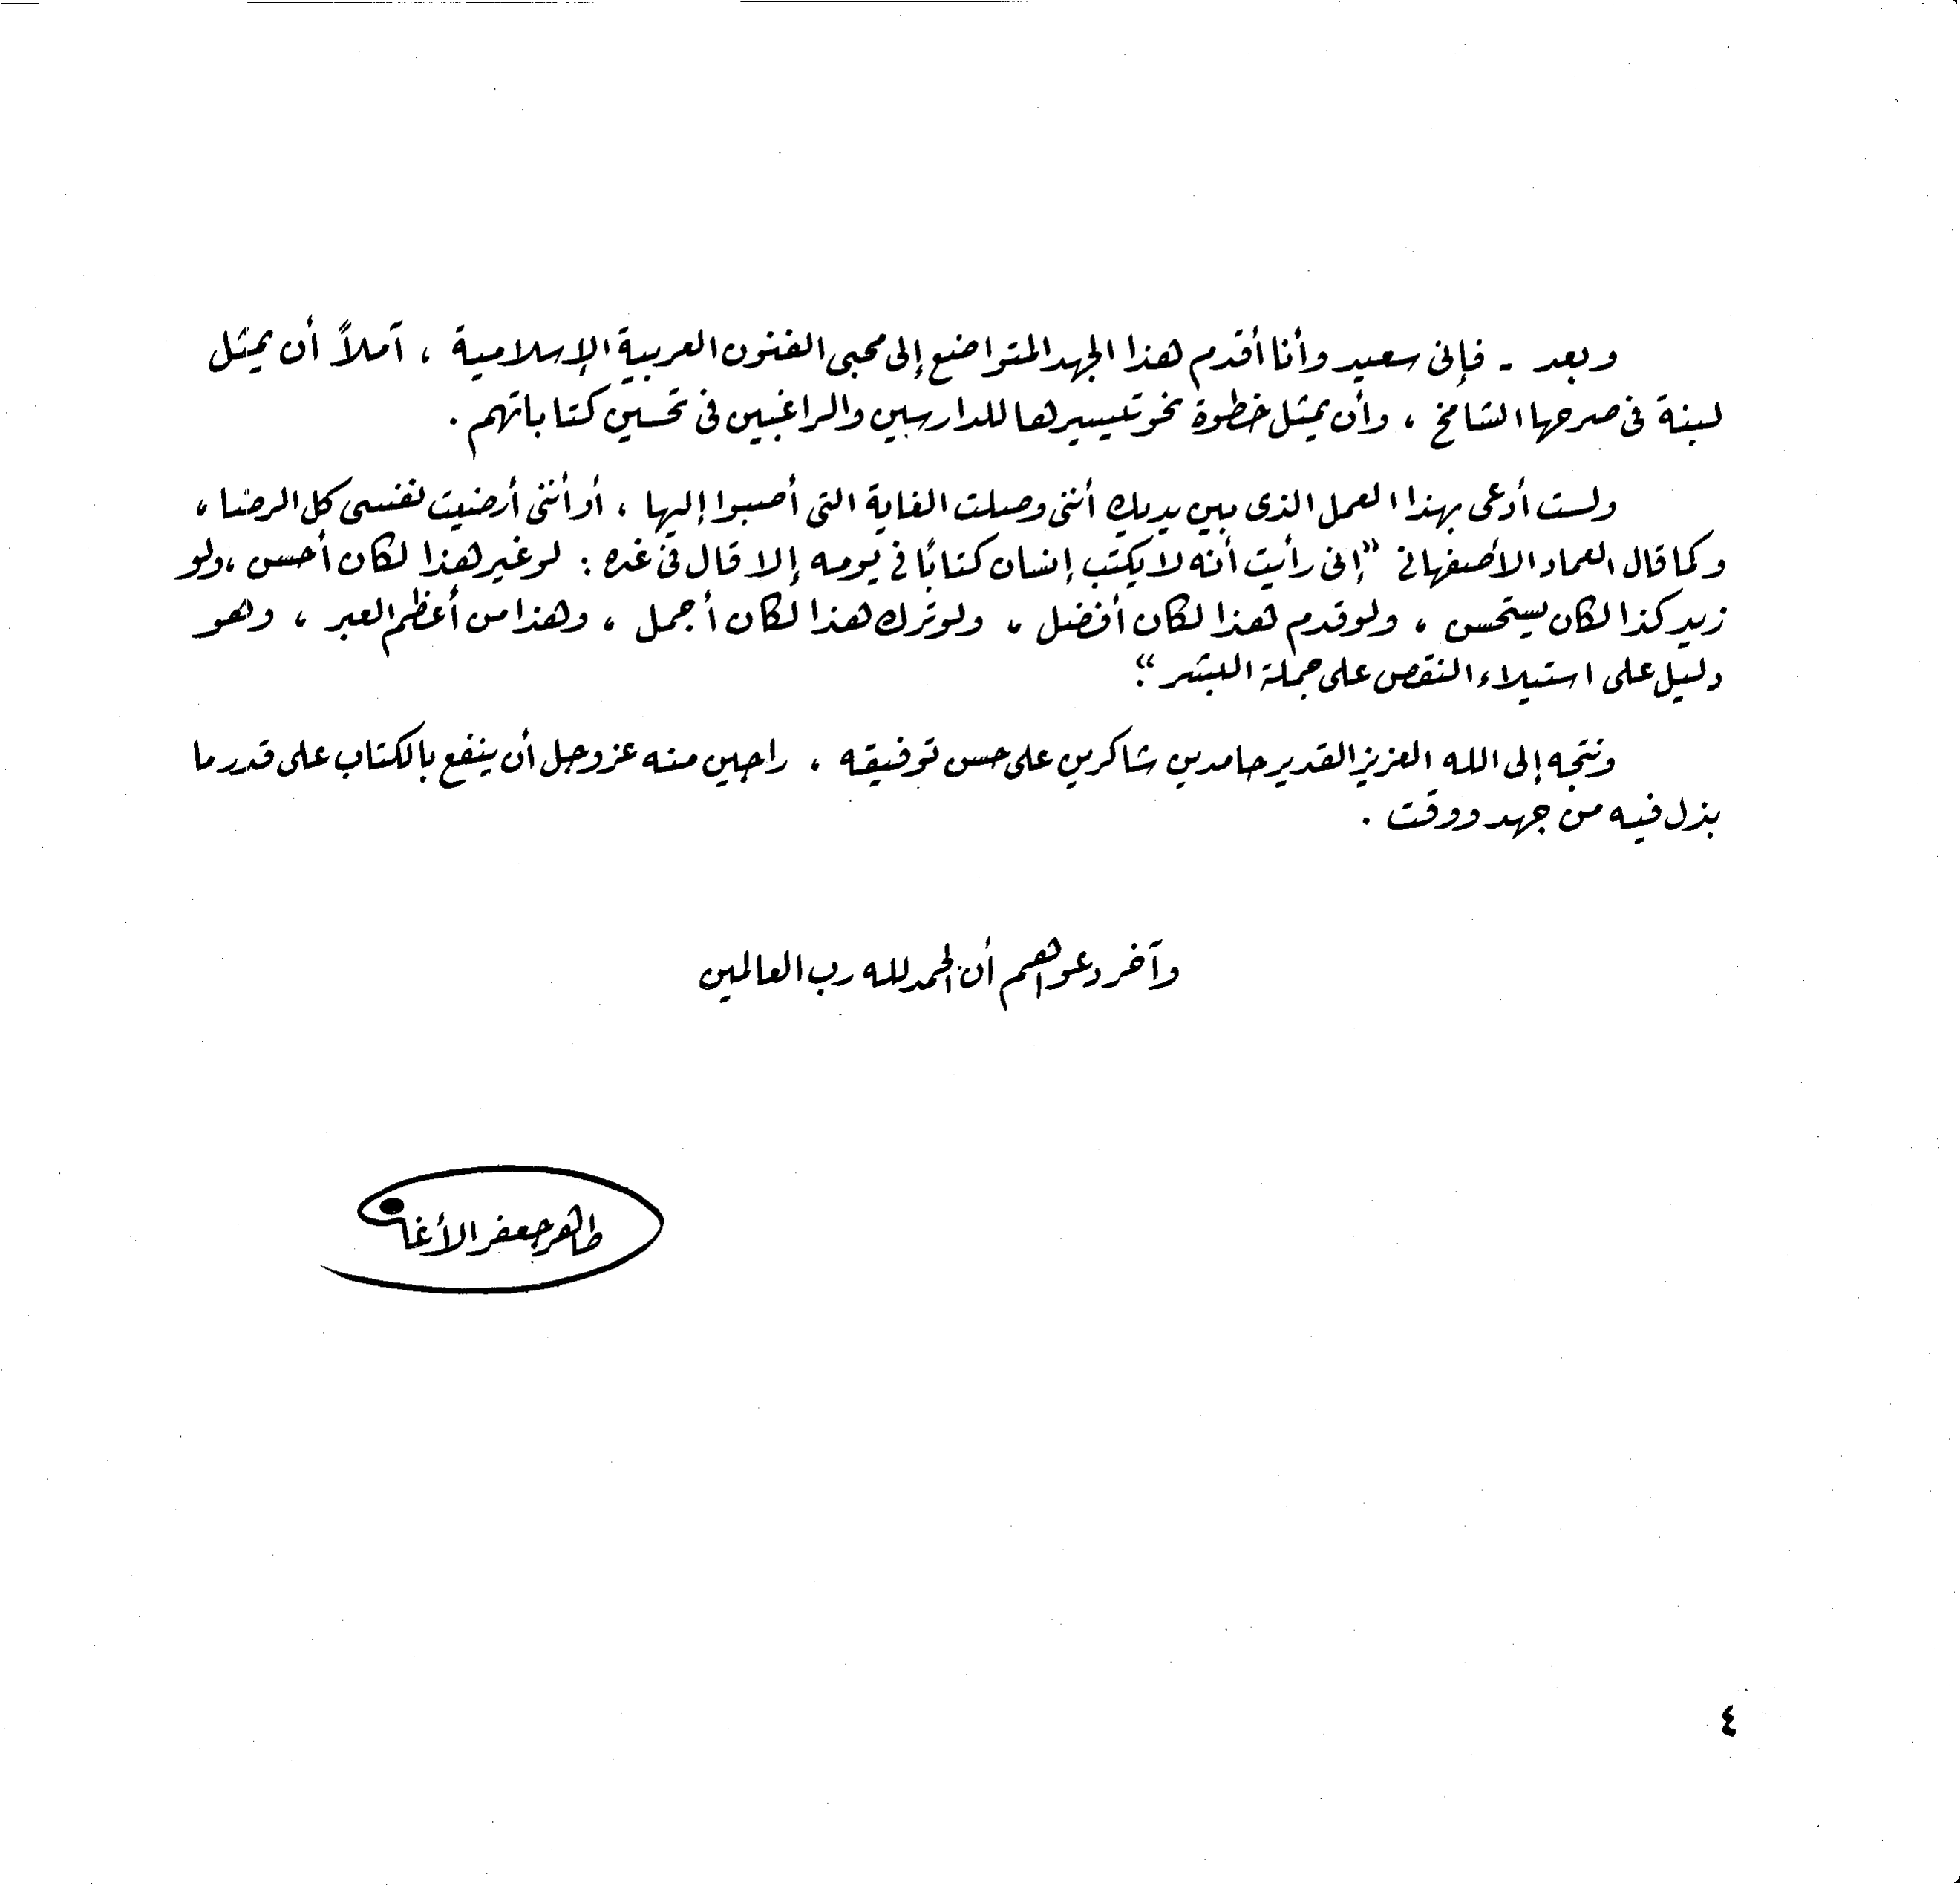 وبعد - فإنى سعيد وأنا أقدم هذا الجهد المتواضع إلى محبى الفنون العربية الإسلامية ، آملاً أن يمثل
لبنة فى صرحها الشامخ ، وأن يمثل خطوة نحو تيسيرها للدارسين والراغبين فى تحسين كتاباتهم .
ولست أدعى بهذا العمل الذى بين يديك أننى وصلت الغاية التى أصبوا إليها ، أو أننى أرضيت نفسى كل الرضا ،
وكما قال العماد الأصفهانى "إنى رأيت أنه لا يكتب إنسان كتابًا فى يومه إلا قال فى غده : لو غير هذا لكان أحسن ، ولو
زيد كذا لكان يستحسن ، ولو قدم هذا لكان أفضل ، ولو ترك هذا لكان أجمل ، وهذا من أعظم العبر ، وهو
دليل على استيلاء النقص على جملة البشر".
ونتجه إلى الله العزيز القدير حامدين شاكرين على حسن توفيقه ، راجين منه عز وجل أن ينفع بالكتاب على قدر ما
بذل فيه من جهد ووقت .
وآخر دعواهم أن الحمد لله رب العالمين
طاهر جعفر الأغا
٤